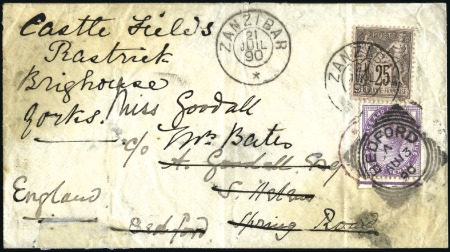 Castle Fields
Rastrick
Brighouse
Yorks.
Miss Goodall
c/o Mrs Bates
A. Goodall Esq
S. Helens
Spring Road
Bedford
England
ZANZIBAR
21
JUIL
90
ZANZI
25
BEDFORD
90